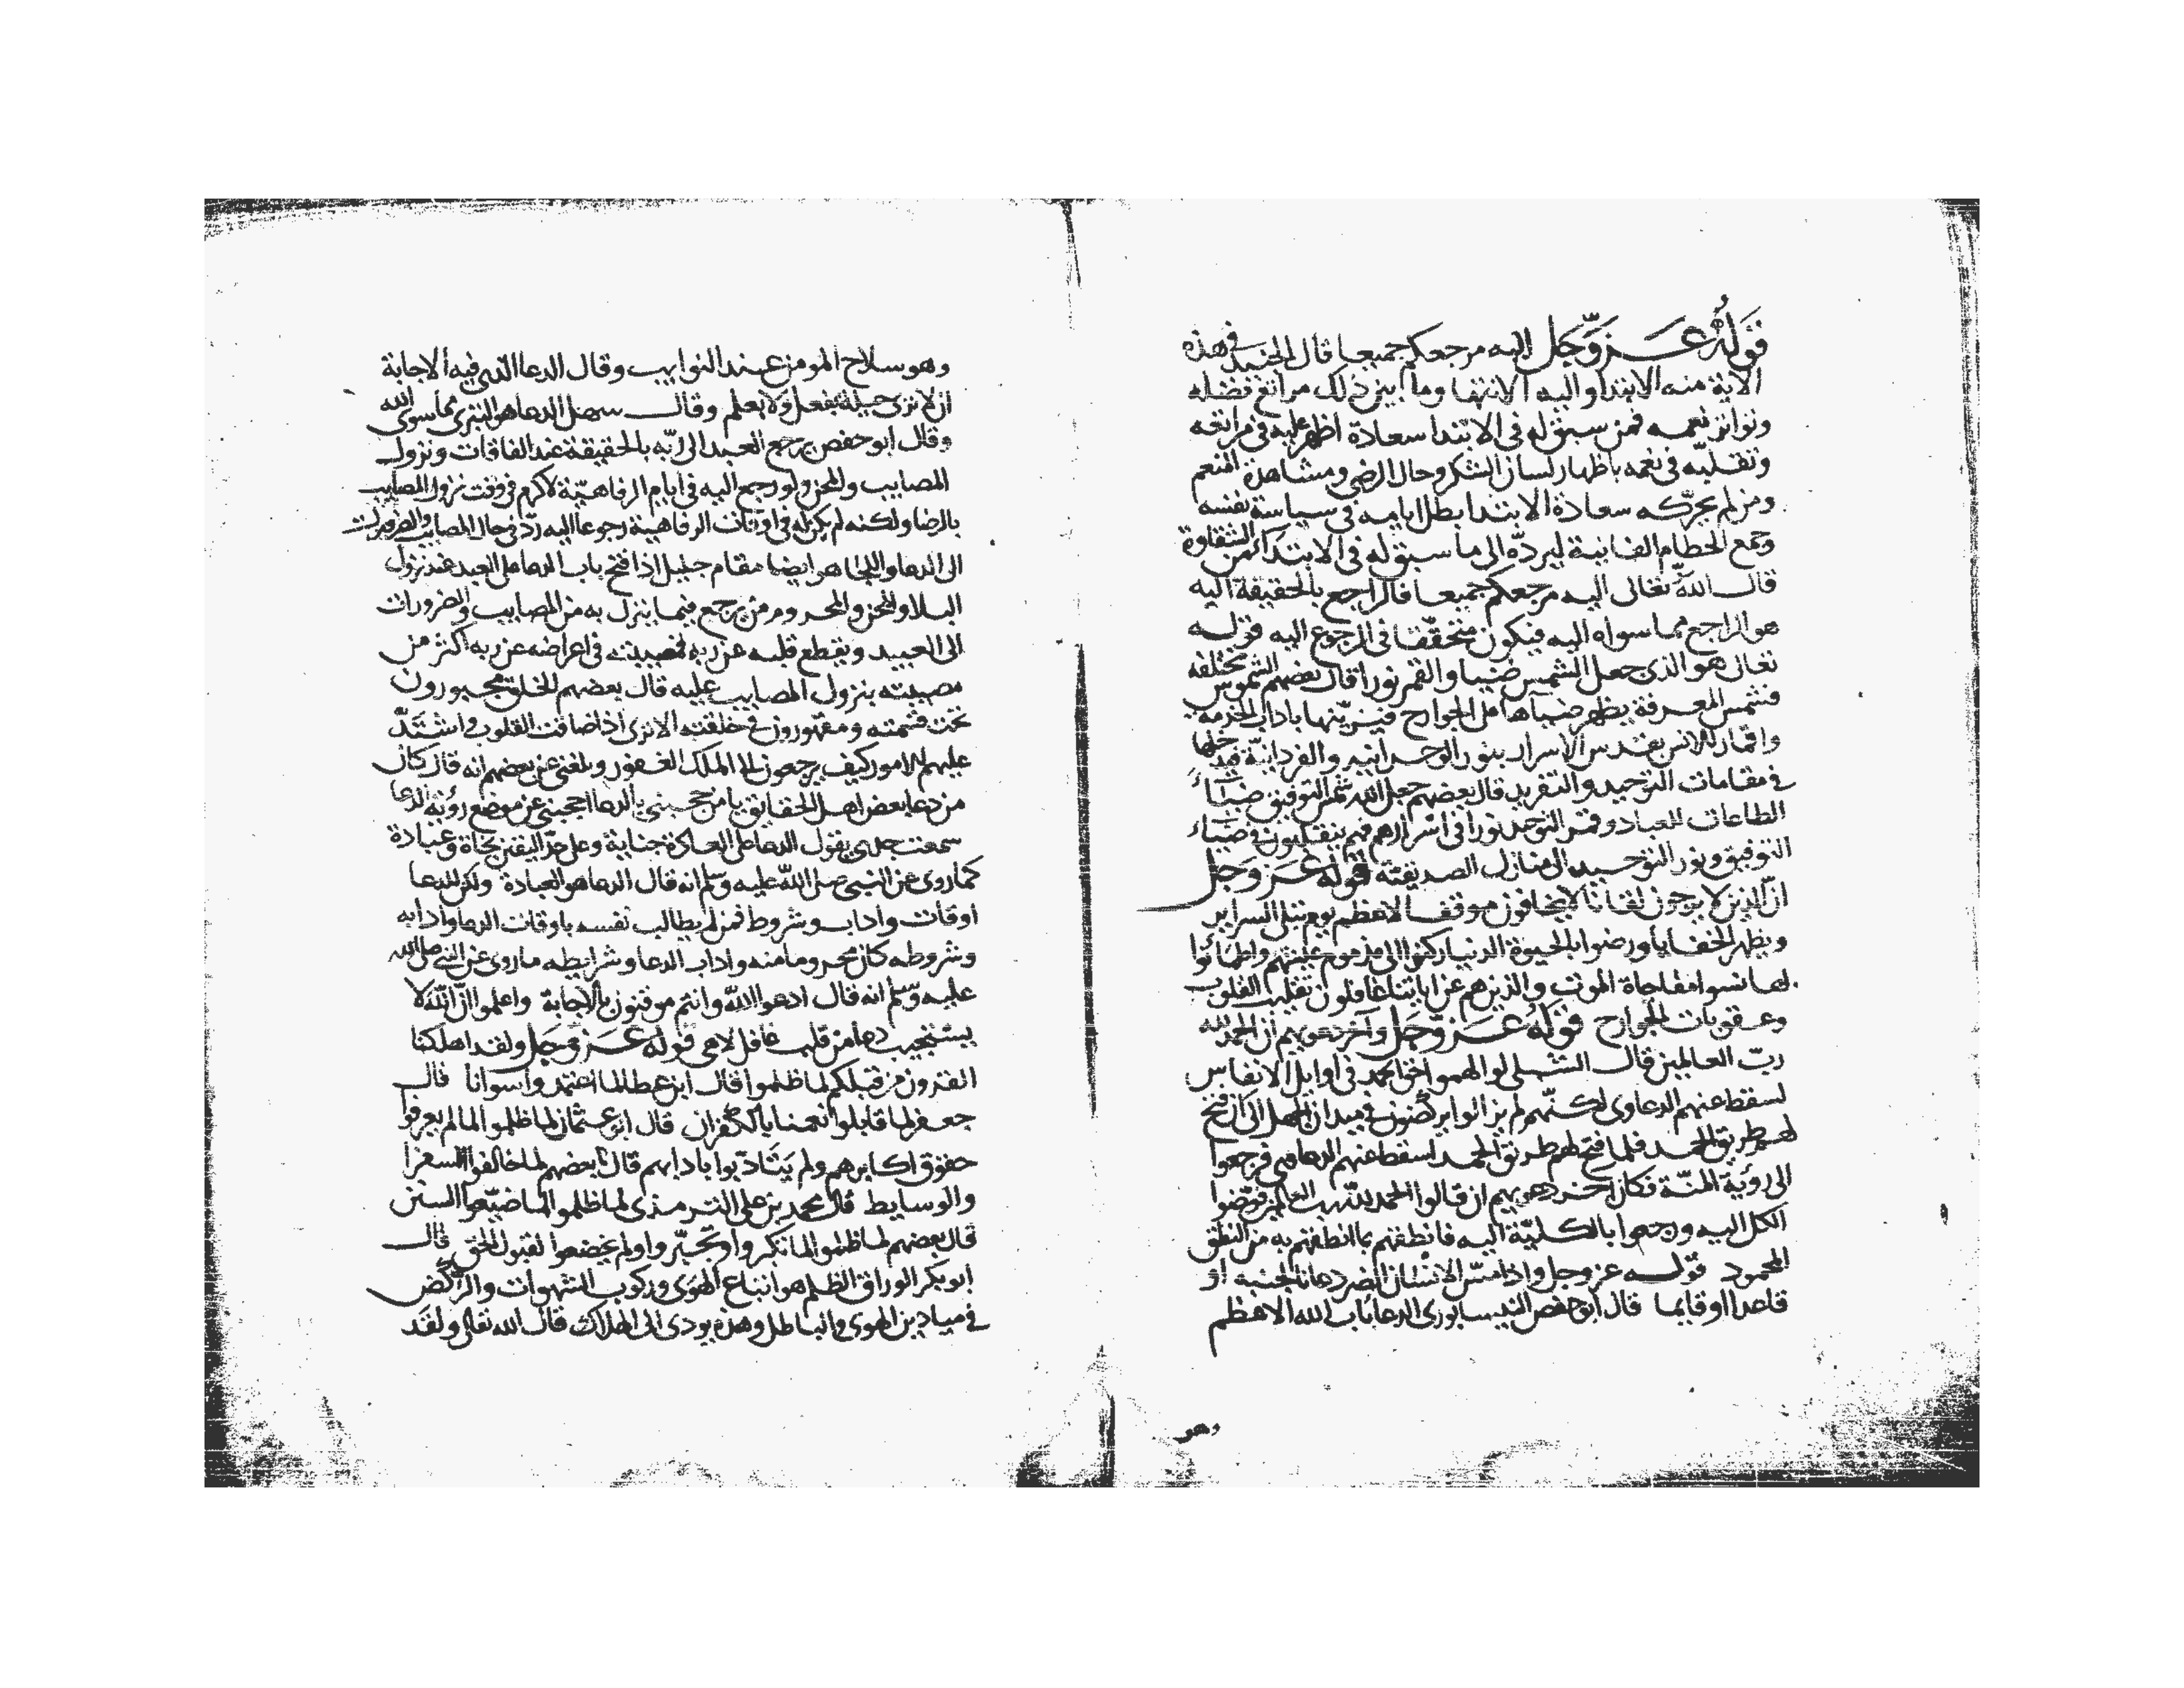 قوله عز وجل اليه مرجعكم جميعا قال الجنيد في هذه
الاية منه الابتدا واليه الانتها وما بين ذلك مراتع فضله
وتواتر نعمه فمن سبق له في الابتدا سعادة اظهر عليه في مراتعه
وتقلبه في نعمه باظهار لسان الشكر وحال الرضى ومشاهدة المنعم
ومن لم تجر له سعادة الابتدا بطل ايامه في سياسة نفسه
وجمع الحطام الفانية ليرده الى ما سبق له في الابتدا من الشقاوة
قال الله تعالى اليه مرجعكم جميعا فالراجع بالحقيقة اليه
هو الراجع مما سواه اليه فيكون متحققا في الرجوع اليه قوله
تعالى هو الذي جعل الشمس ضيا والقمر نورا قال بعضهم الشموس مختلفة
فشمس المعرفة يظهر ضياها على الجوارح فيزينها باداب الخدمة
واقمار الانس بقدس الاسرار بنور الوحدانية والفردانية
في مقامات التوحيد والتفريد قال بعضهم جعل الله شمس التوفيق ضياء
الطاعات للعباد وقمر التوحيد نورا في اسرارهم فهم يتقلبون في ضياء
التوفيق ونور التوحيد الى منازل الصديقية قوله عز وجل
ان الذين لا يرجون لقانا لا يخافون موقف الاعظم يوم تبلى السراير
ويظهر الخفايا ورضوا بالحيوة الدنيا ركنوا الى مذموم عيشهم واطمانوا
بها نسوا مفاجاة الموت والذين هم عن اياتنا غافلون تقليب القلوب
وعقوبات الجوارح قوله عز وجل وآخر دعويهم ان الحمد لله
رب العالمين قال الشبلي لو الهموا حق الحمد في اوايل الانفاس
لسقط عنهم الدعاوى لكنهم لم يزالوا يركضون في ميدان الجهل الى ان فتح
لهم طريق الحمد فلما فتح لهم طريق الحمد اسقط عنهم الدعاوى فرجعوا
الى رؤية المنة فكان اخر دعويهم ان قالوا الحمد لله رب العالمين فوضوا
الكل اليه ورجعوا بالكلية اليه فانطقهم بما انطقهم به من النطق
المحمود قوله عز وجل واذا مس الانسان الضر دعانا لجنبه او
قاعدا او قايما قال ابو حفص النيسابوري الدعا باب الله الاعظم
وهو
وهو سلاح المومن عند النوايب وقال الدعا الذي فيه الاجابة
ان لا ترى حيلة بفعل ولا بعلم وقال سهل الدعا هو التبرى مما سوى الله
وقال ابو حفص يرجع العبد الى ربه بالحقيقة عند الفاقات ونزول
المصايب والمحن ولو رجع اليه في ايام الرفاهية لاكرم في وقت نزول المصايب
بالرضا ولكنه لم يكن له في اوقات الرفاهية رجوعا اليه رد في حال المصايب والضرورات
الى الدعا واللجا هو ايضا مقام جليل اذا فتح باب الدعا على العبد عند نزول
البلا والمحن والمحروم من يرجع فيما ينزل به من المصايب والضرورات
الى العبيد ويقطع قلبه عن ربه فمصيبته في اعراضه عن ربه اكثر من
مصيبته بنزول المصايب عليه قال بعضهم الخلق مجبورون
تحت قسمته ومقهورون في خلقته الا ترى اذا ضاقت القلوب واشتد
عليهم الامور كيف يرجعون الى الملك الغفور وبلغني عن بعضهم انه قال كان
من دعا بعض اهل الحقايق يا من حجبني بالدعا احجبني عن موضع رؤية الدعا
سمعت جدي يقول الدعا على العادة جناية وعلى حد اليقين نجاة وعبادة
كما روي عن النبي صلى الله عليه وسلم انه قال الدعا هو العبادة ولكن للدعا
اوقات واداب وشروط فمن لم يطالب نفسه باوقات الدعا وادابه
وشروطه كان محروما منه واداب الدعا وشرايطه ما روى عن النبي صلى الله
عليه وسلم انه قال ادعوا الله وانتم موقنون بالاجابة واعلموا ان الله لا
يستجيب دعا من قلب غافل لاهي قوله عز وجل ولقد اهلكنا
القرون من قبلكم لما ظلموا قال ابن عطا لما اعتمدوا سوانا قال
جعفر لما قابلوا نعمنا بالكفران قال ابو عثمان لما ظلموا لما لم يعرفوا
حقوق اكابرهم ولم يتادبوا بادابهم قال بعضهم لما خالفوا السفرا
والوسايط قال محمد بن علي الترمذى لما ظلموا لما ضيعوا السنن
قال بعضهم لما ظلموا لما تكبروا وتجبروا ولم يخضعوا لقبول الحق قال
ابو بكر الوراق الظلم هو اتباع الهوى وركوب الشهوات والركض
في ميادين الهوى والباطل وهذه يودى الى الهلاك قال الله تعالى ولقد